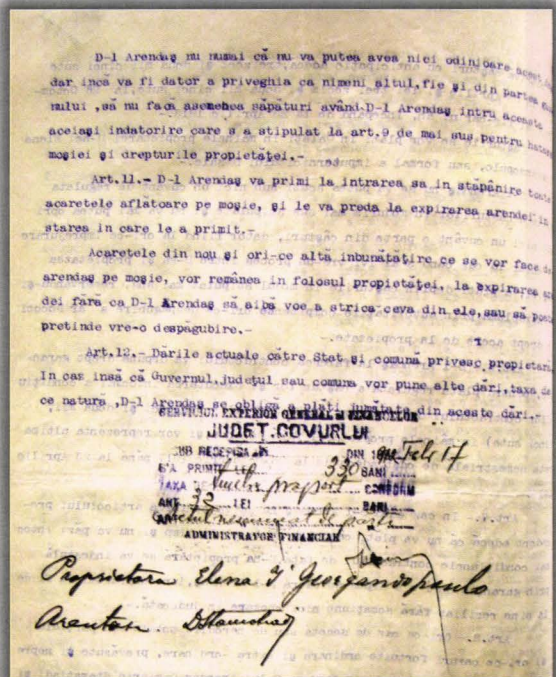 D-l Arendaș nu numai că nu va putea avea nici odinioare acest
dar incă va fi dator a priveghia ca nimeni altul, fie și din partea
nului, să nu facă asemenea săpaturi având D-l Arendaș intru aceasta
aceiași indatorire care s'a stipulat la art.9 de mai sus pentru
moșiei și drepturile propietăței.-
Art.11.- D-l Arendaș va primi la intrarea sa in stăpânire toate
acaretele aflătoare pe moșie, și le va preda la expirarea arendei in
starea in care le a primit.-
Acaretele din nou și ori-ce altă inbunătațire ce se vor face de
arendaș pe moșie, vor românea in folosul propietăței, la expirarea
dei fără ca D-l Arendaș să aibă voe a strica ceva din ele, sau să poată
pretinde vre-o despăgubire.-
Art.12.- Dările actuale către Stat și comună privesc propietara
In caz insă că Guvernul, Județul sau comuna vor pune alte dări, taxa de
ce natură, D-l Arendaș se obligă a plăti jumătate din aceste dări.-
SERVICIUL EXTERIOR GENERAL AL FINANCILOR
JUDEȚ. COVURLUI
SUB RECEPISA DIN 19 Feb 17
S'A PRIMIT Lei 330 BANI
TAXA DE CONFORM
ART. 32 LEI BANI
ADMINISTRATOR FINANCIAR
Proprietara Elena I Georgandopoulo
Arendaș